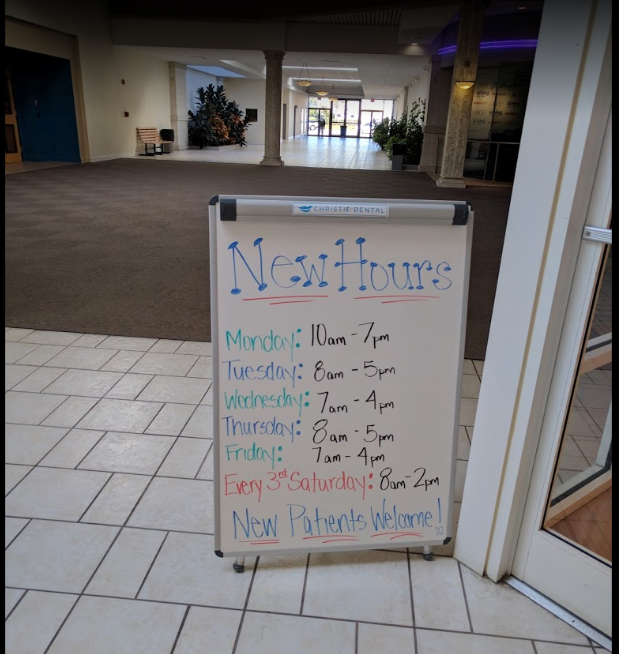 CHRISTIE DENTAL
New Hours
Monday: 10am - 7pm
Tuesday: 8am - 5pm
Wednesday: 7am - 4pm
Thursday: 8am - 5pm
Friday: 7am - 4pm
Every 3rd Saturday: 8am - 2pm
New Patients Welcome!